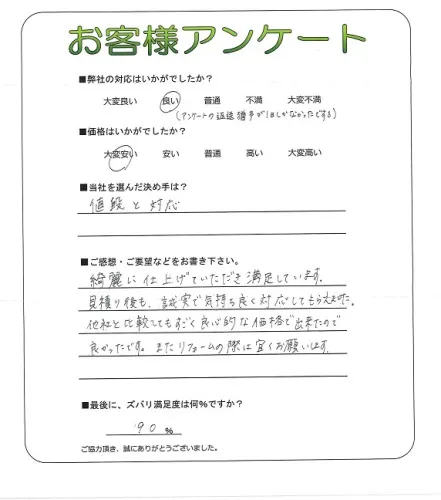 お客様アンケート
■弊社の対応はいかがでしたか？
大変良い 良い 普通 不満 大変不満
(アンケートの返送 が1日しかなかったです)
■価格はいかがでしたか？
大変安い 安い 普通 高い 大変高い
■当社を選んだ決め手は？
値段と対応
■ご感想・ご要望などをお書き下さい。
綺麗に仕上げていただき満足しています。
見積り後も、誠実で気持ち良く対応してもらえた。
他社と比較してもすごく良心的な価格で出来たので
良かったです。またリフォームの際は宜くお願います。
■最後に、ズバリ満足度は何%ですか？
90 %
ご協力頂き、誠にありがとうございました。